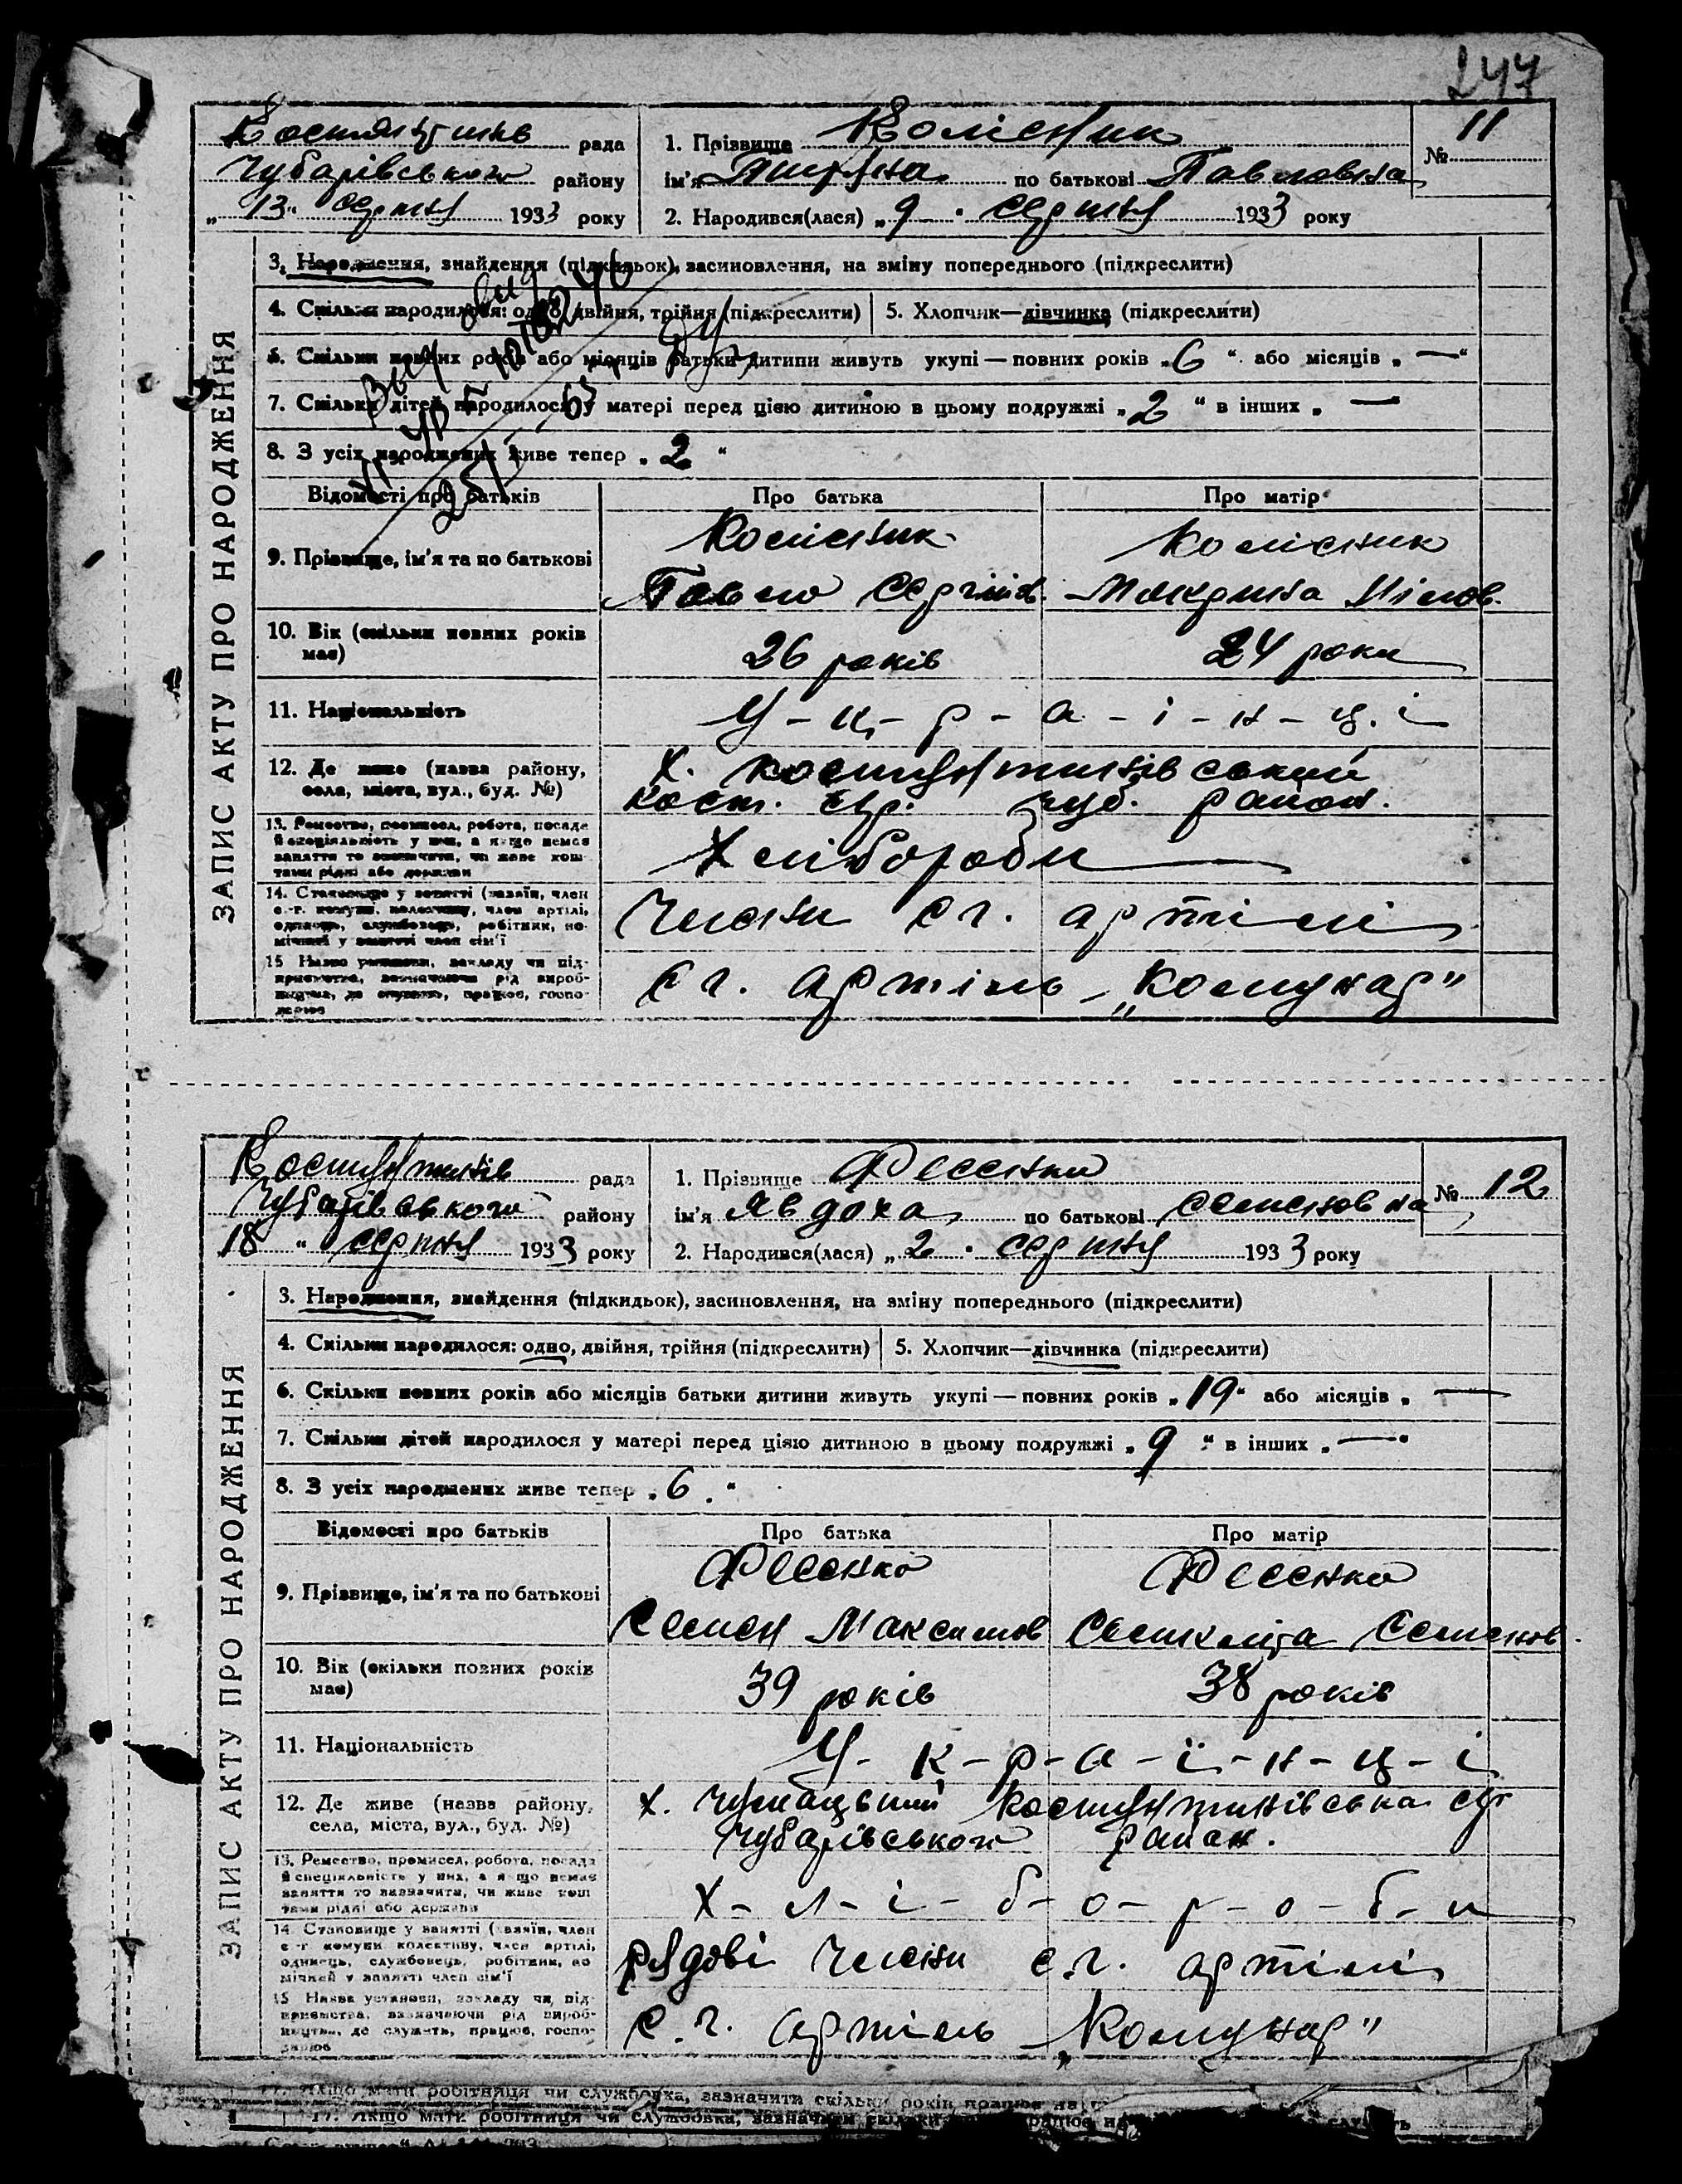 247
Костянтинів рада
Чубарівського району
„ 13 " серпня 1933 року
1. Прізвище Колісник
ім'я по батькові Павловна
2. Народився(лася) „ 9 " серпня 1933 року
№ 11
ЗАПИС АКТУ ПРО НАРОДЖЕННЯ
3. Народження, знайдення (підкидьок), засиновлення, на зміну попереднього (підкреслити)
4. Скільки народилося: одно, двійня, трійня (підкреслити) 5. Хлопчик—дівчинка (підкреслити)
6. Скільки повних років або місяців батьки дитини живуть укупі — повних років „ 6 " або місяців „ — "
7. Скільки дітей народилося у матері перед цією дитиною в цьому подружжі „ 2 " в інших „ — "
8. З усіх народжених живе тепер „ 2 "
Відомості про батьків Про батька Про матір
9. Прізвище, ім'я та по батькові
Колісник Колісник
Павло Сергіїв. Мокрина
10. Вік (скільки повних років має)
26 років 24 роки
11. Національність
У - к - р - а - ї - н - ц - і
12. Де живе (назва району, села, міста, вул., буд. №)
х. Костянтинівський
Кост. с/р. Чуб. район.
13. Ремество, промисел, робота, посада й спеціяльність у них, а якщо немає заняття то зазначити, чи живе коштами рідні або держави
Хлібороби
14. Становище у занятті (хазяїн, член с.-г. комуни, колективу, член артілі, одинець, службовець, робітник, помічний у занятті член сім'ї
Члени с.г. артілі
15. Назва установи, закладу чи підприємства, зазначаючи рід виробництва, де служить, працює, господарює
С.г. артіль „Комунар"
Костянтинів рада
Чубарівського району
18 " серпня 1933 року
1. Прізвище Фесенко
ім'я Явдоха по батькові Семеновна
2. Народився(лася) „ 2 " серпня 1933 року
№ 12
ЗАПИС АКТУ ПРО НАРОДЖЕННЯ
3. Народження, знайдення (підкидьок), засиновлення, на зміну попереднього (підкреслити)
4. Скільки народилося: одно, двійня, трійня (підкреслити) 5. Хлопчик—дівчинка (підкреслити)
6. Скільки повних років або місяців батьки дитини живуть укупі — повних років „ 19 " або місяців „ —
7. Скільки дітей народилося у матері перед цією дитиною в цьому подружжі „ 9 " в інших „ — "
8. З усіх народжених живе тепер „ 6 "
Відомості про батьків Про батька Про матір
9. Прізвище, ім'я та по батькові
Фесенко Фесенко
Семен Максимов Семенов.
10. Вік (скільки повних років має)
39 років 38 років
11. Національність
У - к - р - а - ї - н - ц - і
12. Де живе (назва району, села, міста, вул., буд. №)
х. Чумацький Костянтинівська с/р
Чубарівського район.
13. Ремество, промисел, робота, посада й спеціяльність у них, а якщо немає заняття то зазначити, чи живе коштами рідні або держави
Х - л - і - б - о - р - о - б - и
14. Становище у занятті (хазяїн, член с.-г. комуни колективу, член артілі, одинець, службовець, робітник, помічний у занятті член сім'ї
рядові члени с.г. артілі
15. Назва установи, закладу чи підприємства, зазначаючи рід виробництва, де служить, працює, господарює
С.г. артіль „Комунар"
17. Якщо мати робітниця чи службовка, зазначити скільки років працює
17. Якщо мати робітниця чи службовка, зазначити скільки